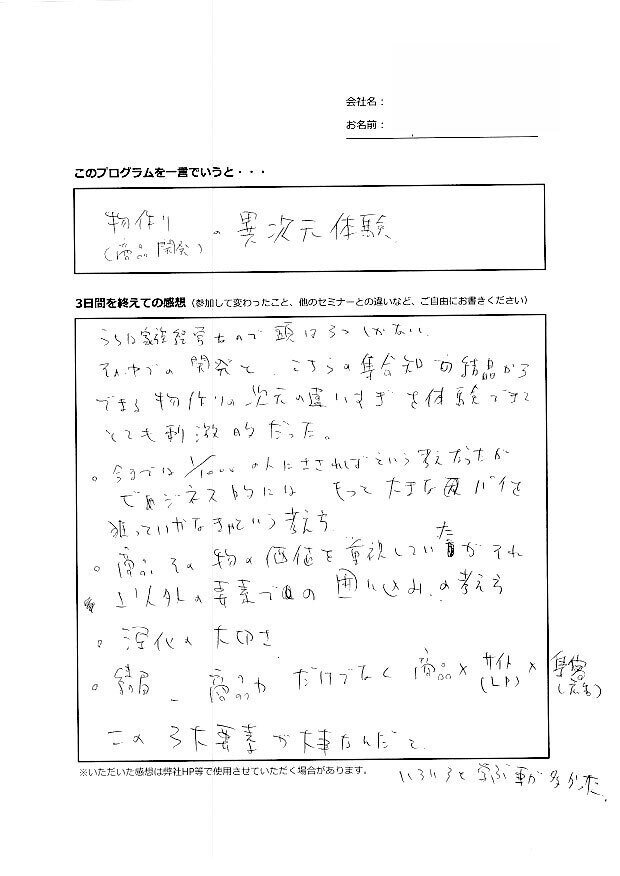 会社名：
お名前：
このプログラムを一言でいうと・・・
物作り の異次元体験
(商品開発)
3日間を終えての感想（参加して変わったこと、他のセミナーとの違いなど、ご自由にお書きください）
うちは家族経営なので頭は3つしかない。
その中での開発と、こちらの集合知の結晶から
できる物作りの次元の違いすぎを体験できて
とても刺激的だった。
。今までは 1/1000 の人にささればという考えだったが
ビジネス的には もっと大きな パイを
狙っていかなきゃという考え方
。商品その物の価値を重視していたがそれ
以外の要素での囲い込みの考え方
。深化の大切さ
。結局、商品力だけでなく商品×サイト(LP)×集客
この3大要素が大事なんだと
※いただいた感想は弊社HP等で使用させていただく場合があります。
いろいろと学ぶ事が多かった。